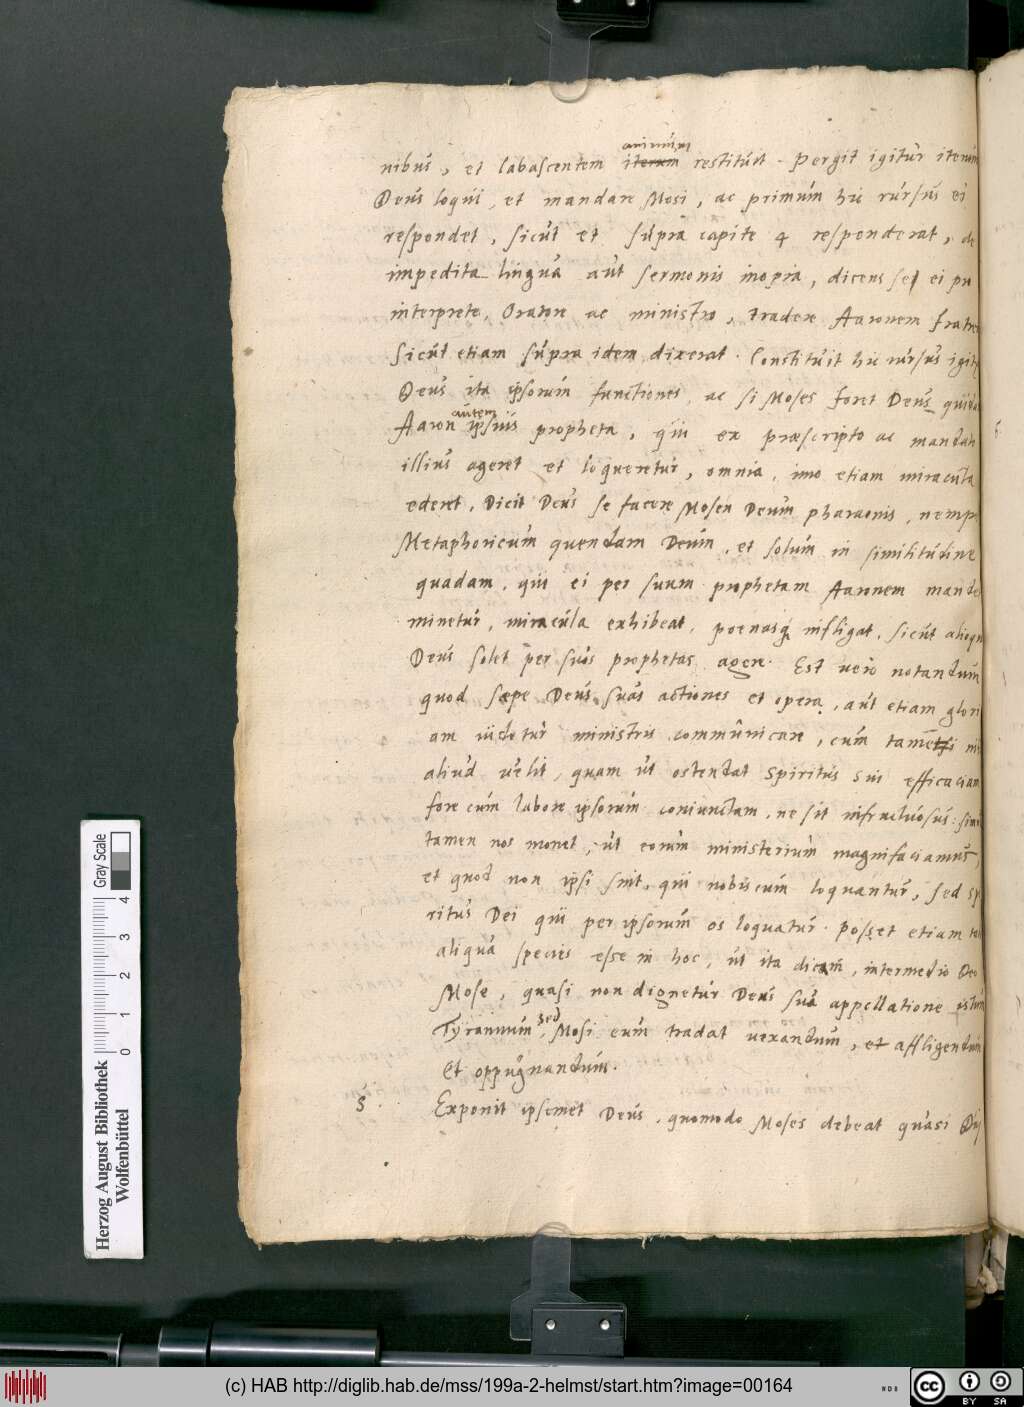 nibus, et labascentem animum restituit. Pergit igitur iterum
Deus loqui, et mandare Mosi, ac primum hic rursus ei
respondet, sicut et supra capite 4 responderat, de
impedita lingua aut sermonis inopia, dicens se ei pu
interprete, Oratore ac ministro, tradere Aaronem fratre
Sicut etiam supra idem dixerat. Constituit hic rursus igit
Deus ita ipsorum functiones, ac si Moses foret Deus quida
Aaron autem ipsius propheta, qui ex praescripto ac mandati
illius ageret et loqueretur, omnia, imo etiam miracula
ederet, Dicit Deus se facere Mosen Deum pharaonis, nemp
Metaphoricum quendam Deum, et solum in similitudine
quadam, qui ei per suum prophetam Aaronem mande
minetur, miracula exhibeat, poenasq infligat, sicut alioqn
Deus solet per suos prophetas agere. Est vero notandum
quod saepe Deus suas actiones et opera, aut etiam glori
am videtur ministris communicare, cum tamen ni
aliud velit, quam ut ostendat Spiritus sui efficaciam
fore cum labore ipsorum coniunctam, ne sit infructuosus: simu
tamen nos monet, ut eorum ministerium magnifaciamus,
et quod non ipsi sint, qui nobiscum loquantur, sed Sp
ritus Dei qui per ipsorum os loquatur. Posset etiam
aliqua species esse in hoc, ut ita dicam, intermedio Deo
Mose, quasi non dignetur Deus sua appellatione istum
Tyrannum, sed Mosi eum tradat vexandum, et affligendum
Et oppugnandum.
5. Exponit ipsemet Deus, quomodo Moses debeat quasi
Herzog August Bibliothek
Wolfenbüttel
0 1 2 3 4
Gray Scale
(c) HAB http://diglib.hab.de/mss/199a-2-helmst/start.htm?image=00164
cc BY SA